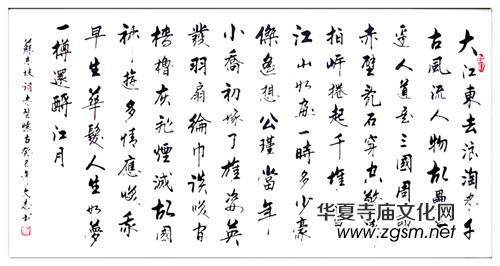 大江東去浪淘尽千
古風流人物故壘西
邊人道是三國周郎
赤壁乱石穿空驚濤
拍岸捲起千堆
江山如画一時多少豪
傑遥想公瑾當年
小喬初嫁了雄姿英
發羽扇綸巾談笑间
檣櫓灰飛煙滅故國
神遊多情應笑我
早生華髮人生如夢
一樽還酹江月
蘇东坡词赤壁懷古癸巳年
华夏寺庙文化网
www.zgsm.net